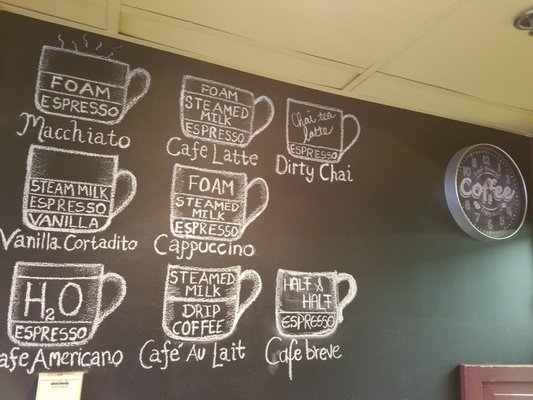 FOAM
ESPRESSO
Macchiato
FOAM
STEAMED
MILK
ESPRESSO
Cafe Latte
Chai tea
latte
ESPRESSO
Dirty Chai
STEAM MILK
ESPRESSO
VANILLA
Vanilla Cortadito
FOAM
STEAMED
MILK
ESPRESSO
Cappuccino
FOAM
H2O
ESPRESSO
afe Americano
STEAMED
MILK
DRIP
COFFEE
Café Au Lait
HALF &
HALF
ESPRESSO
Cafe breve
Coffee